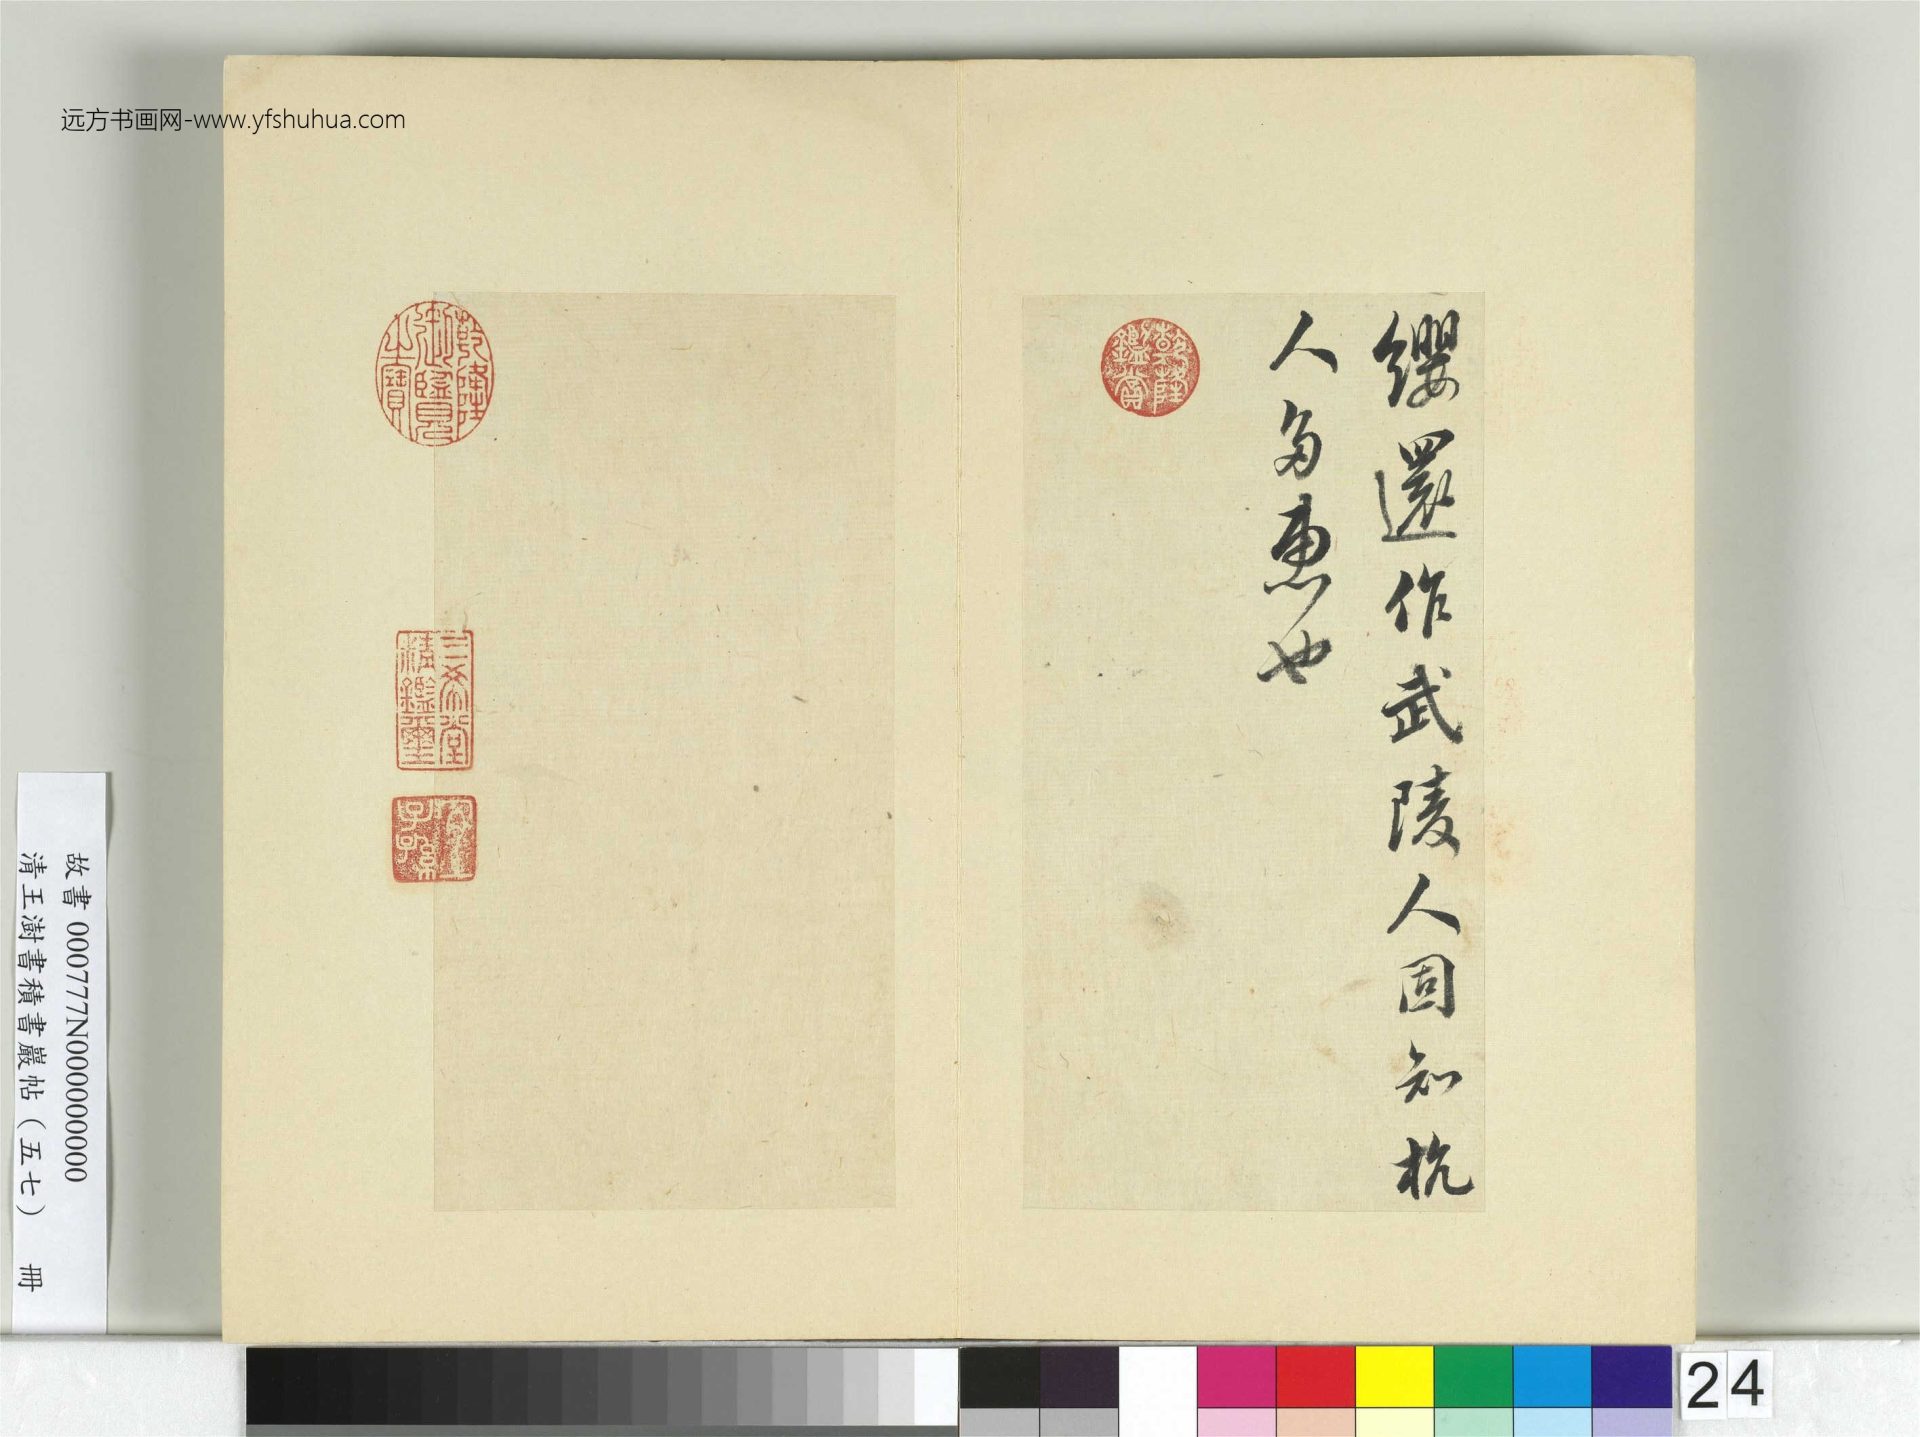 远方书画网-www.yfshuhua.com
纓還作武陵人固知杭
人多惠也
乾隆鑑賞
乾隆御覽之寶
三希堂精鑑璽
宜子孫
故書 000777N000000000
清王澍書積書巖帖（五七） 冊
24